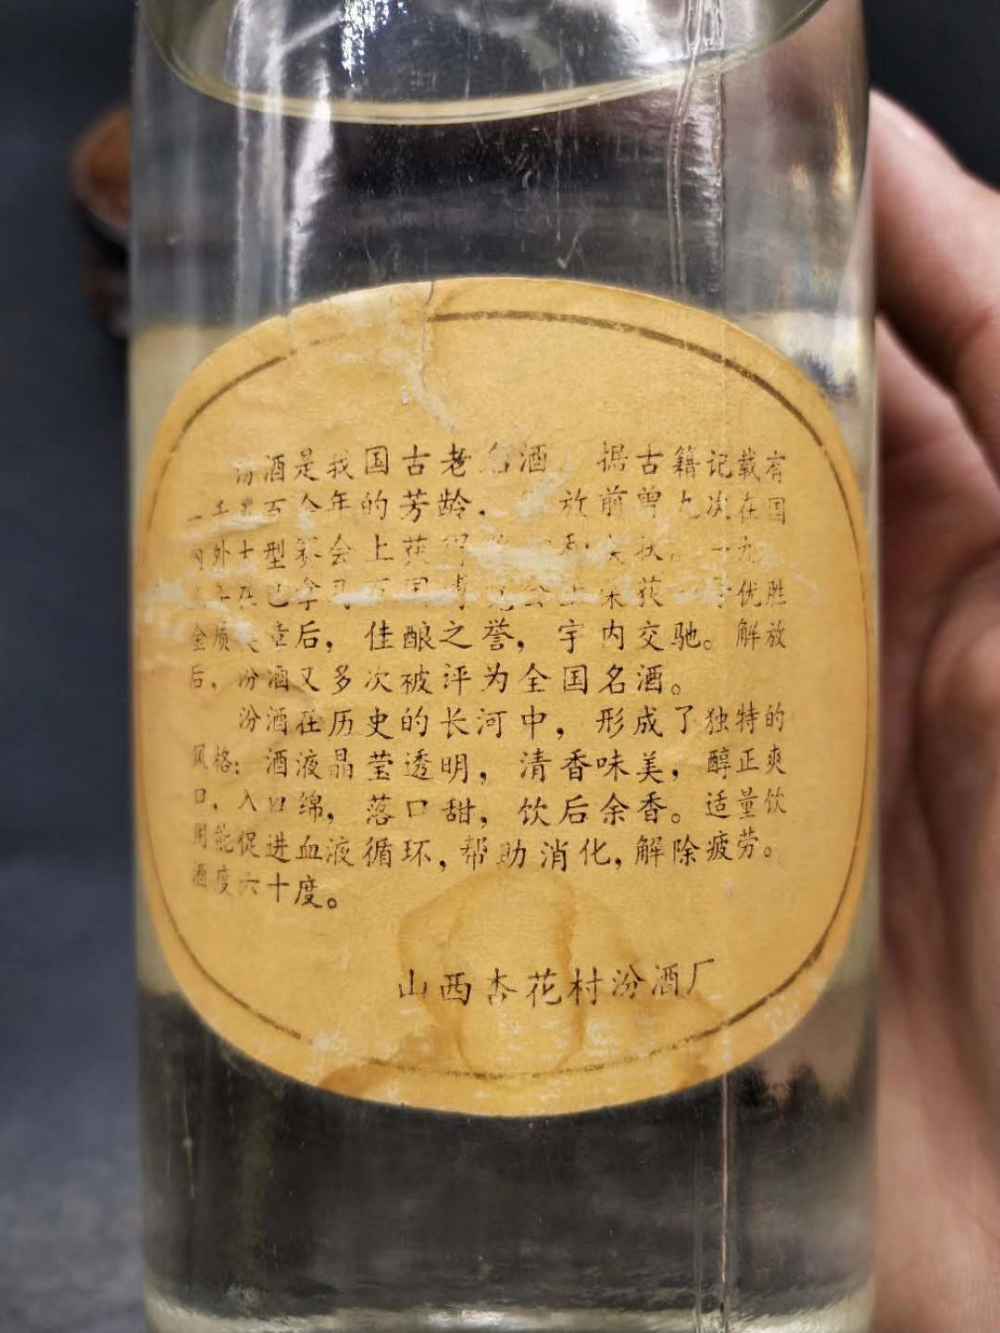 汾酒是我国古老名酒，据古籍记载有
一千 百余年的芳龄. 放前曾九次在国
内外大型赛会上获得
巴拿马万国博览会上荣获 优胜
金质奖章后，佳酿之誉，宇内交驰。解放
后，汾酒又多次被评为全国名酒。
汾酒在历史的长河中，形成了独特的
风格：酒液晶莹透明，清香味美，醇正爽
口，入口绵，落口甜，饮后余香。适量饮
用能促进血液循环，帮助消化，解除疲劳。
酒度六十度。
山西杏花村汾酒厂